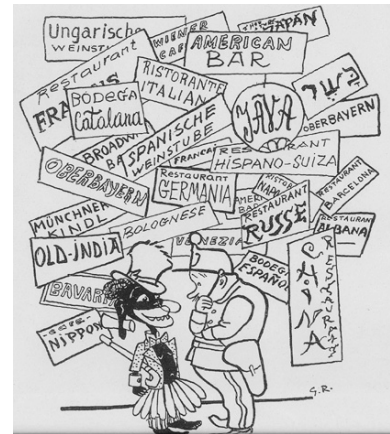 Ungarische
WEINSTU
WIENER
CAF
JAPAN
AMERICAN
BAR
Restaurant
FRA
IS
RISTORANTE
ITALIAN
BODEGA
Catalana
JAVA
כשר
OBERBAYERN
BROADW
BA
SPANISCHE
WEINSTUBE
FRANCA
RES
RANT
HISPANO-SUIZA
OBERBAYERN
Restaurant
GERMANIA
RISTOR
NAPO
RESTAURANT
BARCELONA
MÜNCHNER
KINDL
BOLOGNESE
AMERI
BA
RESTAURANT
RUSSE
RESTAURAN
ALBANA
OLD-INDIA
VENEZIA
BODEG
ESPAÑO
CHINA
RESTAURANT
BAVARI
CAFÉ
NIPPON
G.R.